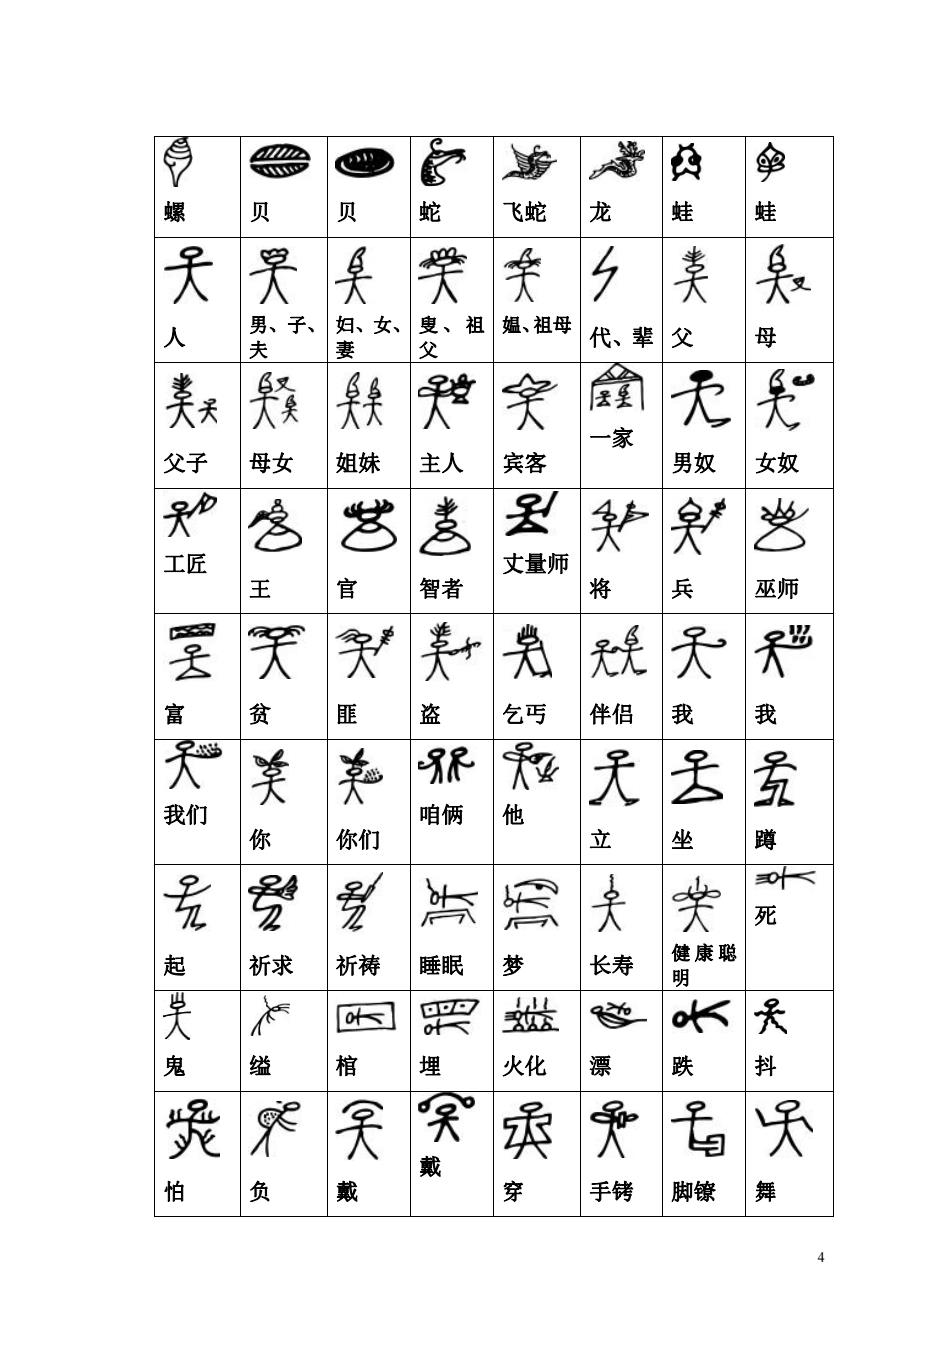 螺 贝 贝 蛇 飞蛇 龙 蛙 蛙
人 男、子、夫 妇、女、妻 叟、祖父 媪、祖母 代、辈 父 母
父子 母女 姐妹 主人 宾客 一家 男奴 女奴
工匠 王 官 智者 丈量师 将 兵 巫师
富 贫 匪 盗 乞丐 伴侣 我 我
我们 你 你们 咱俩 他 立 坐 蹲
起 祈求 祈祷 睡眠 梦 长寿 健康聪明 死
鬼 缢 棺 埋 火化 漂 跌 抖
怕 负 戴 戴 穿 手铐 脚镣 舞
4